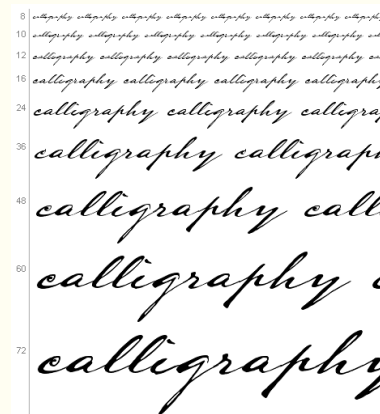 8 calligraphy calligraphy calligraphy calligraphy calligraphy calligraphy
10 calligraphy calligraphy calligraphy calligraphy calligraphy calligraphy
12 calligraphy calligraphy calligraphy calligraphy calligraphy
16 calligraphy calligraphy calligraphy calligraphy
24 calligraphy calligraphy calligra
36 calligraphy calligraph
48 calligraphy calli
60 calligraphy c
72 calligraphy